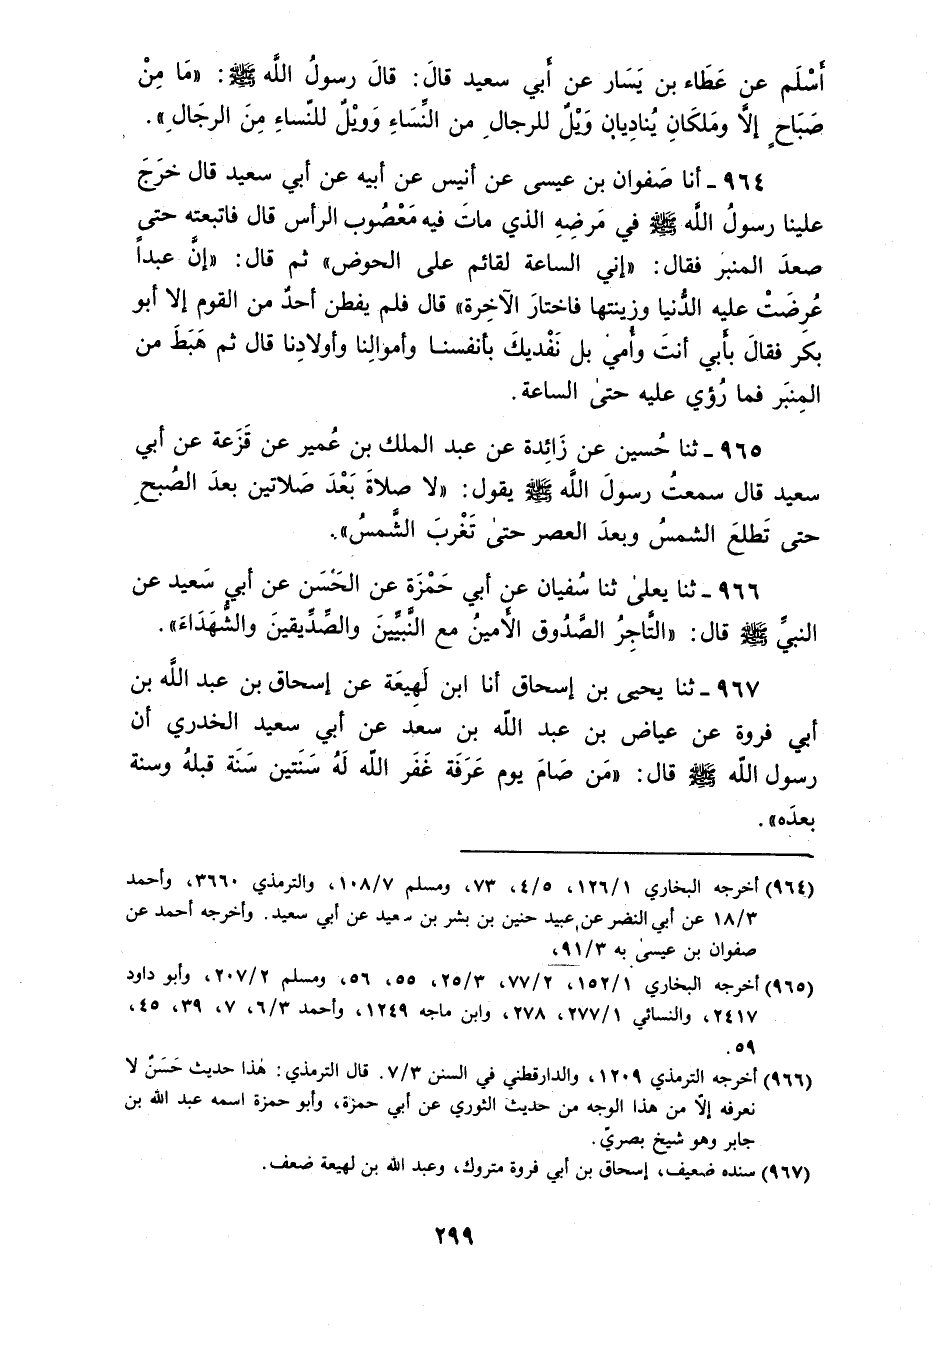 أَسْلَم عن عَطَاء بن يَسَار عن أَبي سعيد قالَ: قالَ رسولُ اللَّه ﷺ: «مَا مِنْ
صَبَاحٍ إلَّا ومَلكَانِ يُنادِيانِ وَيْلٌ للرجالِ من النِّسَاءِ وَوَيْلٌ للنِّساءِ مِنَ الرجَالِ».
٩٦٤ ـ أنا صَفوان بن عيسى عن أنيس عن أبيه عن أبي سعيد قال خرَجَ
علينا رسولُ اللَّه ﷺ في مَرضِهِ الذي ماتَ فيه مَعْصُوب الرأس قال فاتبعته حتى
صعدَ المنبرَ فقال: «إني الساعة لقائم على الحوض» ثم قال: «إنَّ عبداً
عُرضَتْ عليه الدُّنيا وزينتها فاختارَ الآخِرة» قال فلم يفطن أحدٌ من القوم إلا أبو
بكر فقالَ بأَبي أنتَ وأُمي بل نَفْديكَ بأنفسنا وأموالِنا وأولادِنا قال ثم هَبَطَ من
المِنبَر فما رُؤي عليه حتىٰ الساعة.
٩٦٥ ـ ثنا حُسين عن زَائِدة عن عبد الملك بن عُمير عن قَزَعة عن أبي
سعيد قال سمعتُ رسولَ اللَّه ﷺ يقول: «لا صلاةَ بَعْدَ صَلاتين بعدَ الصُبحِ
حتى تَطلعَ الشمسُ وبعدَ العصر حتىٰ تَغْربَ الشَّمسُ».
٩٦٦ ـ ثنا يعلىٰ ثنا سُفيان عن أبي حَمْزَة عن الحَسَن عن أبي سَعيد عن
النبيِّ ﷺ قال: «التَّاجِرُ الصَّدُوق الأَمينُ مع النَّبيِّينَ والصِّدِّيقينَ والشُّهَدَاءَ».
٩٦٧ ـ ثنا يحيى بن إسحاق أنا ابن لَهِيعَة عن إسحاق بن عبد اللَّه بن
أبي فروة عن عياض بن عبد اللّه بن سعد عن أبي سعيد الخدري أن
رسول اللّه ﷺ قال: «مَن صَامَ يوم عَرَفَة غَفَر اللّه لَهُ سَنَتين سَنَة قبلهُ وسنة
بعدَه».
(٩٦٤) أخرجه البخاري ١٢٦/١، ٤/٥، ٧٣، ومسلم ١٠٨/٧، والترمذي ٣٦٦٠، وأحمد
١٨/٣ عن أبي النضر عن عبيد حنين بن بشر بن سعيد عن أبي سعيد. وأخرجه أحمد عن
صفوان بن عيسىٰ به ٩١/٣،
(٩٦٥) أخرجه البخاري ١٥٢/١، ٧٧/٢، ٢٥/٣، ٥٥، ٥٦، ومسلم ٢٠٧/٢، وأبو داود
٢٤١٧، والنسائي ٢٧٧/١، ٢٧٨، وابن ماجه ١٢٤٩، وأحمد ٦/٣، ٧، ٣٩، ٤٥،
٥٩.
(٩٦٦) أخرجه الترمذي ١٢٠٩، والدارقطني في السنن ٧/٣. قال الترمذي: هٰذا حديث حَسَنٌ لا
نعرفه إلّا من هذا الوجه من حديث الثوري عن أبي حمزة، وأبو حمزة اسمه عبد الله بن
جابر وهو شيخ بصريّ.
(٩٦٧) سنده ضعيف، إسحاق بن أبي فروة متروك، وعبد الله بن لهيعة ضعف.
٢٩٩